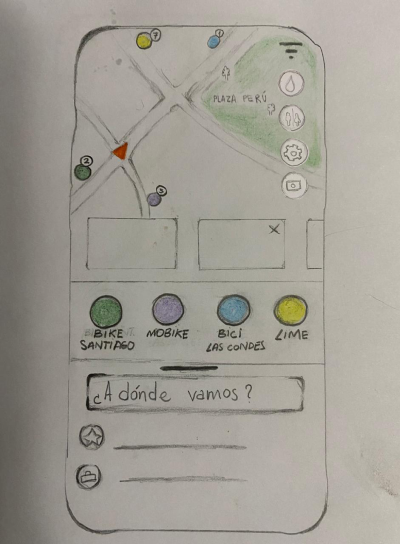 7
1
PLAZA PERÚ
2
3
BIKE SANTIAGO
MOBIKE
BICI LAS CONDES
LIME
¿A dónde vamos?